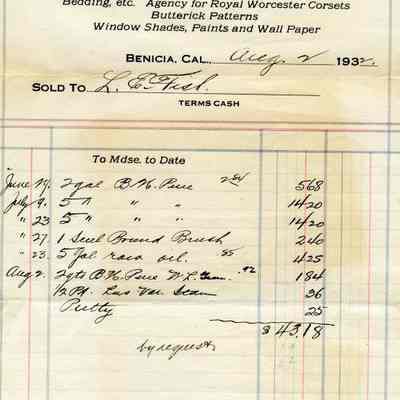 Bedding, etc. Agency for Royal Worcester Corsets
Butterick Patterns
Window Shades, Paints and Wall Paper
BENICIA, CAL., Aug 2 1932.
SOLD TO L. E. Fish.
TERMS CASH
To Mdse. to Date
June 19. 2 gal B.H. Pure 2 84 568
July 9. 5 " " " 1420
" 23 5 " " " 1420
" 27. 1 Brush 240
" 23. 5 Gal raw oil. 85 425
Aug 2. 2 qts B.H. Pure 92 184
1/2 Pt. Var. 36
Putty 25
$ 43.18
by request